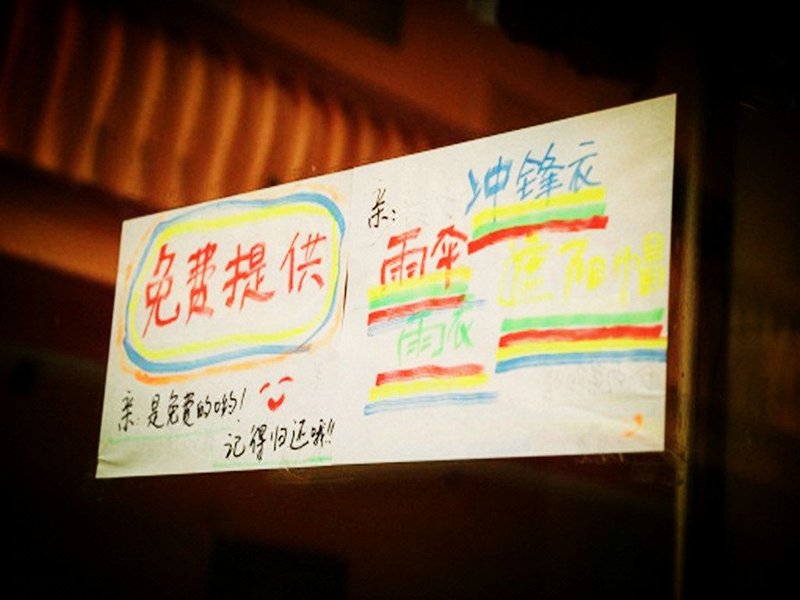 免费提供
亲:是免费的哟!
记得归还哦!!
亲:
冲锋衣
雨伞
遮阳帽
雨衣